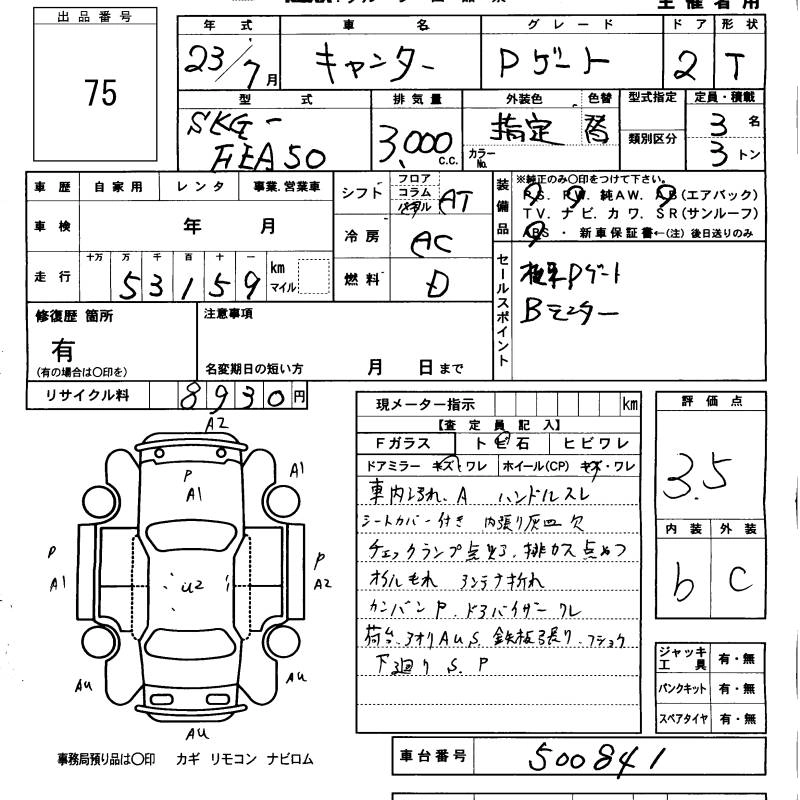 主催者用
出品番号
75
年式 車名 グレード ドア 形状
23/7月 キャンター Pゲート 2 T
型式 排気量 外装色 色替 型式指定 定員・積載
SKG-
FEA50
3,000 C.C.
指定 替
カラーNo.
類別区分
3名
3トン
車歴 自家用 レンタ 事業、営業車
車検 年 月
走行 十万 万 千 百 十 一
53159 km マイル
シフト フロア コラム パネル AT
冷房 AC
燃料 D
装備品
※純正のみ〇印をつけて下さい。
P.S. P.W. 純AW. AB(エアバック)
TV. ナビ. カワ. SR(サンルーフ)
ABS ・ 新車保証書←(注) 後日送りのみ
セールスポイント
極東Pゲート
Bモニター
修復歴 箇所
有
(有の場合は〇印を)
注意事項
名変期日の短い方 月 日まで
リサイクル料 8930円
現メーター指示 km
【査定員記入】
Fガラス トビ石 ヒビワレ
ドアミラー キズ・ワレ ホイール(CP) キズ・ワレ
車内よごれ、A ハンドルスレ
シートカバー付き 内張り 灰皿欠
チェックランプ点灯、排ガス点めつ
オイルもれ アンテナ折れ
カンバンP. ドアバイザーワレ
荷台、アオリAUS. 鉄板張り、フショク
下廻り S. P
評価点
3.5
内装 外装
b C
ジャッキ工具 有・無
パンクキット 有・無
スペアタイヤ 有・無
A2
P
A1
A1
P
A1
u2
P
A2
AU
AU
AU
事務局預り品は〇印 カギ リモコン ナビロム
車台番号 500841